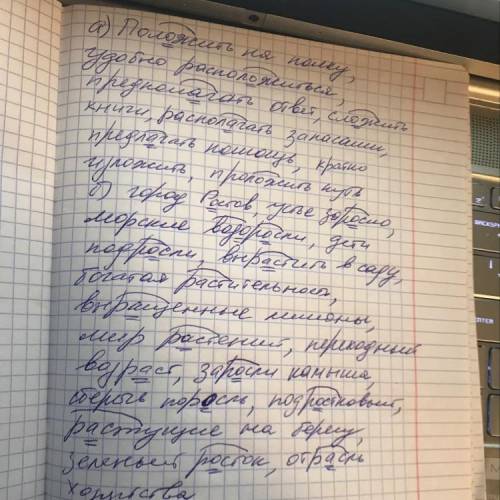 а) Положить на полку,
удобно расположиться,
предполагать ответ, сложить
книги, располагать запасами,
предлагать помощь, кратко
изложить, проложить путь
б) город Ростов, устье заросло,
морские водоросли, дети
подросли, вырастить в саду,
богатая растительность,
выращенные лимоны,
мир растений, переходный
возраст, заросли камыша,
поросль, подростковый,
растущие на берегу,
зеленый росток, отрасль
хозяйства
BACKSP
ENTER